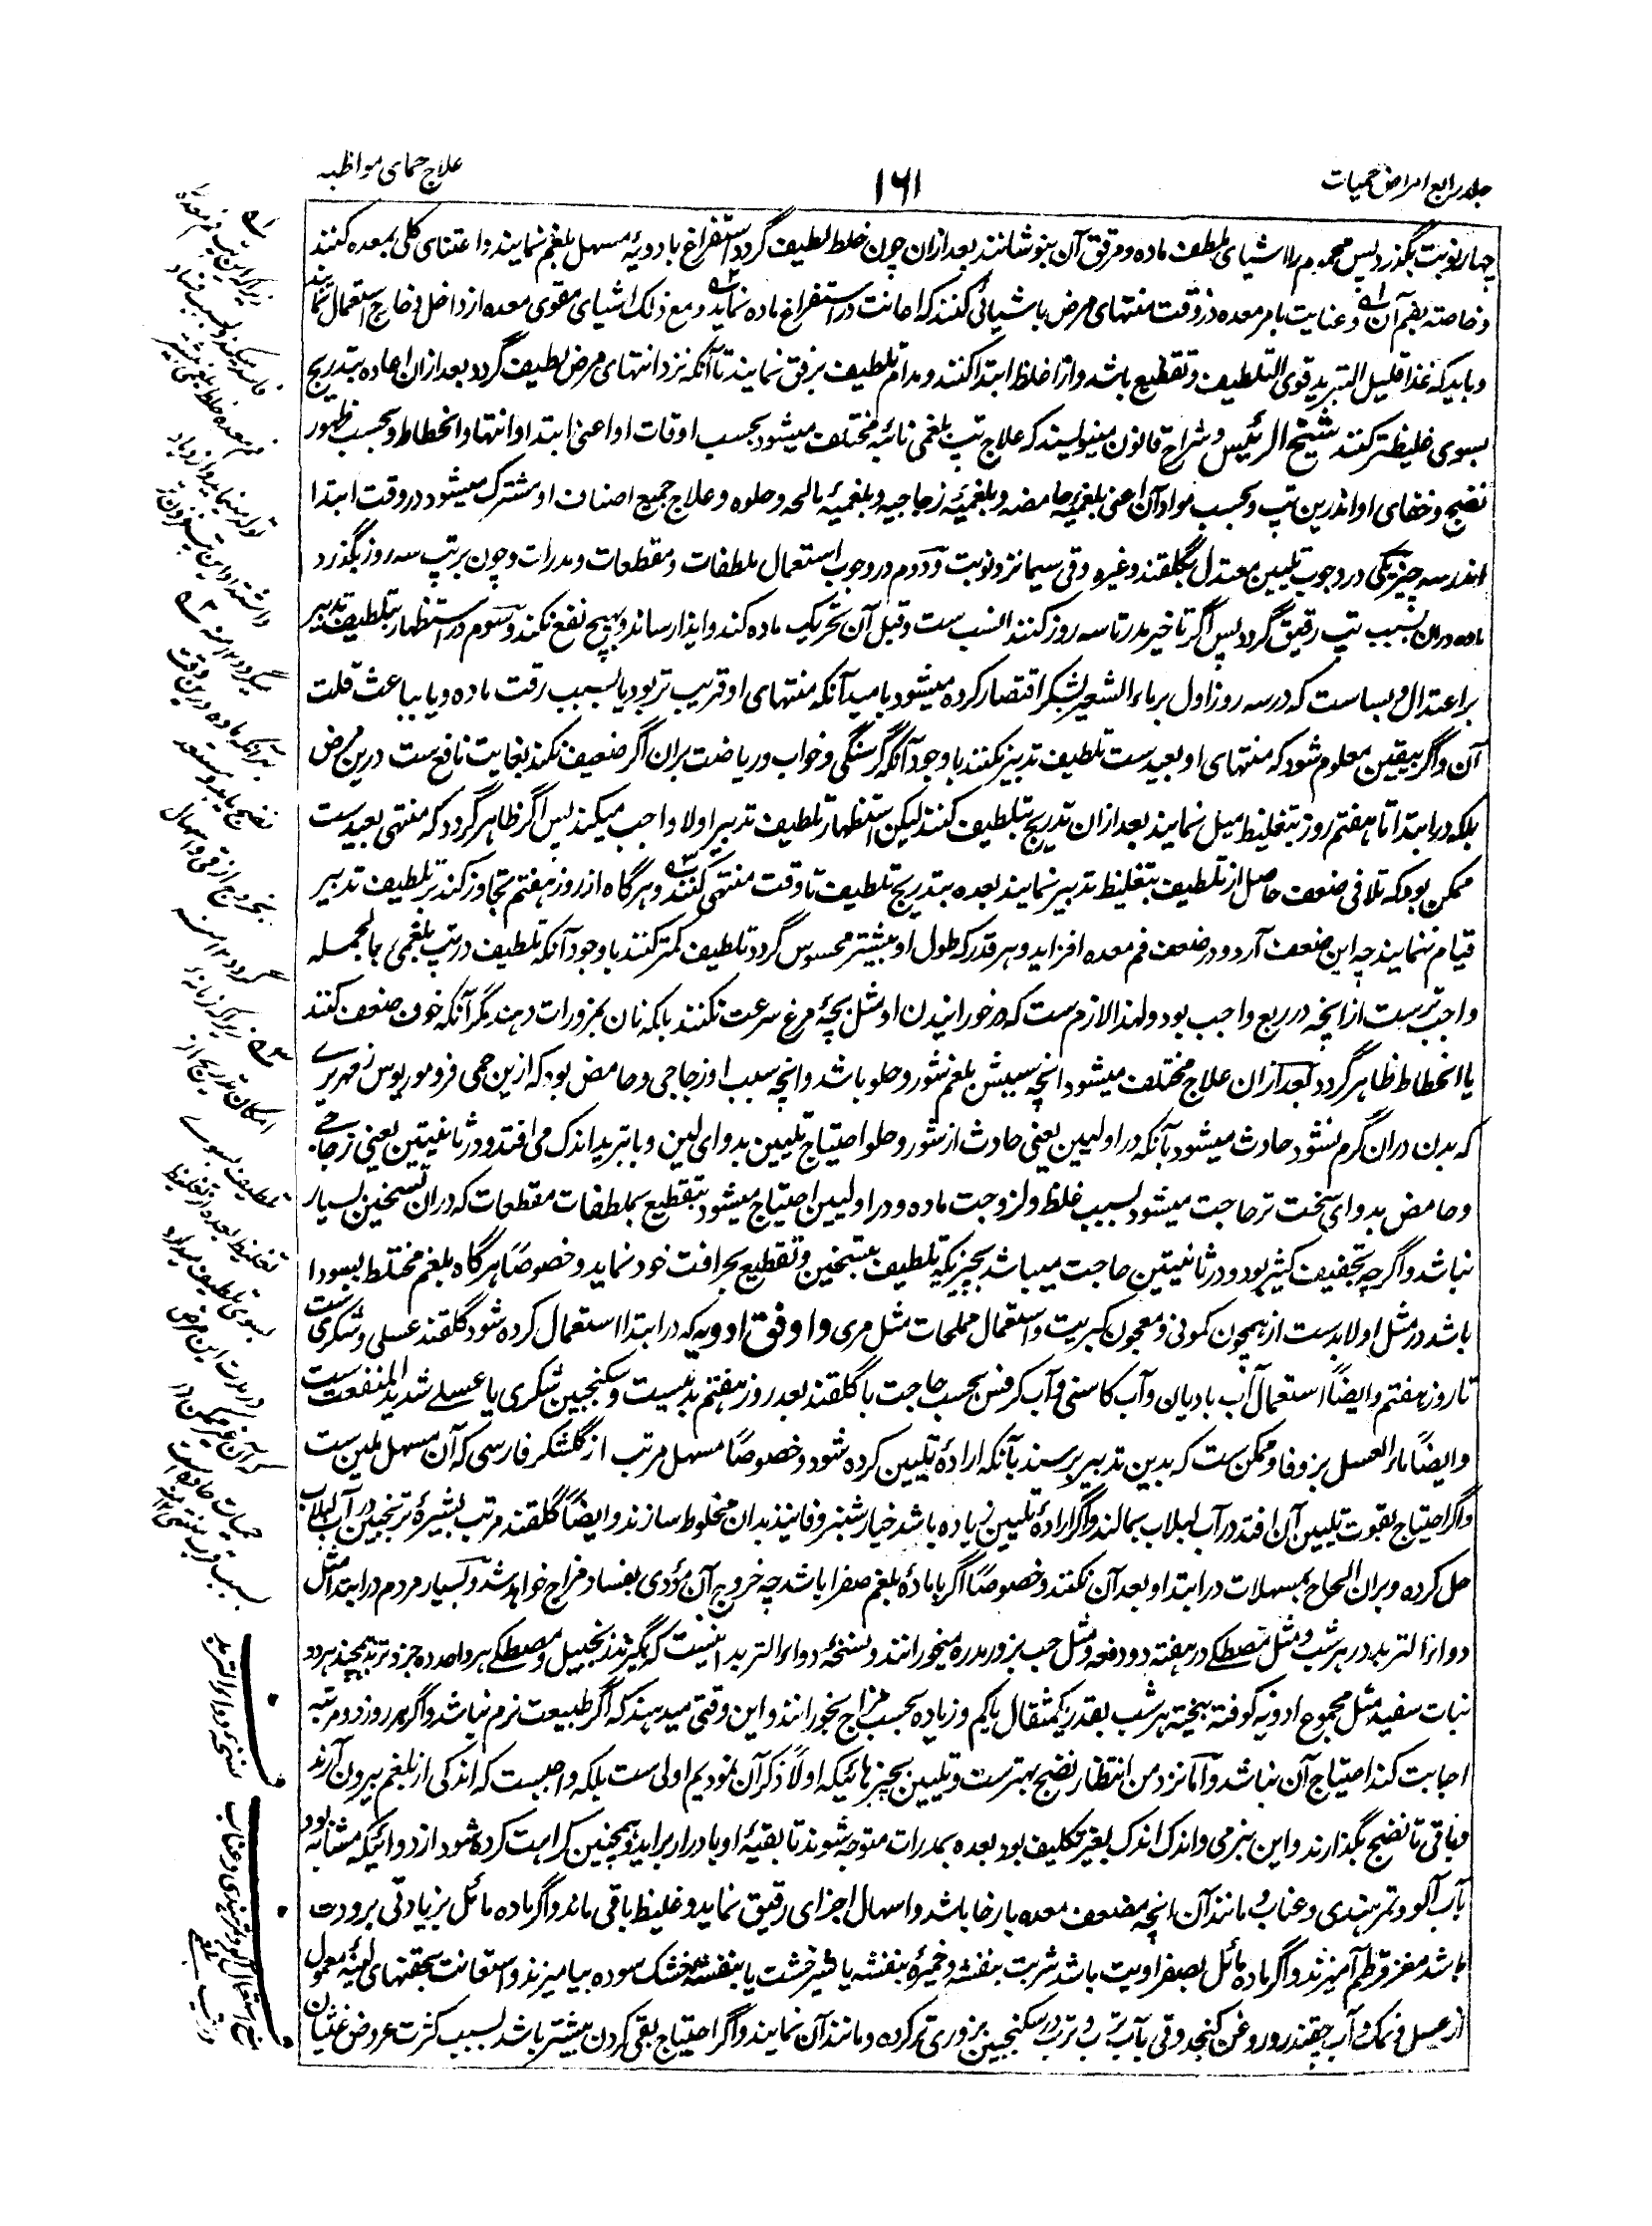 جلد رابع امراض حمیات
۱۶۱
علاج حمای مواظبہ
چہار نوبت بگذرد پس محموم را اشیای ملطف ماده و مرقق آن بنوشانند بعد ازان چون خلط لطیف گردد استفراغ بادویۂ مسہل بلغم نمایند و اعتنای کلی بمعده کنند
و خاصتہ بفم آن و عنایت بامر معده در وقت منتہای مرض باشیائی کنند که اعانت در استفراغ ماده نماید و مع ذلک اشیای مقوی معده از داخل و خارج استعمال نمایند
و باید که غذا قلیل التبرید قوی التلطیف و تقطیع باشد و از اغلظ ابتدا کنند و مدام تلطیف برفق نمایند تا آنکه نزد انتہای مرض لطیف گردد بعد ازان اعاده بتدریج
بسوی غلیظتر کنند شیخ الرئیس و شراح قانون مینویسند که علاج تپ بلغمی نائبہ مختلف میشود بحسب اوقات او اعنی ابتدا و انتہا و انحطاط و بحسب ظہور
نضج و خفای او اندرین تپ و بحسب مواد آن اعنی بلغمیۂ حامضہ و بلغمیۂ زجاجیہ و بلغمیۂ مالحہ و حلوه و علاج جمیع اصناف او مشترک میشود در وقت ابتدا
اندر سہ چیز یکی در وجوب تلیین معتدل بگلقند و غیره و قی سیما نزد نوبت و دوم در وجوب استعمال ملطفات و مقطعات و مدرات و چون برتپ سہ روز بگذرد
ماده دران بسبب تپ رقیق گردد پس اگر تاخیر مدر تا سہ روز کنند انسب ست و قبل آن تحریک ماده کند و ایذا رساند و ہیچ نفع نکند و سوم در استظہار بتلطیف تدبیر
بر اعتدال و بسا ست که در سہ روز اول بر ماء الشعیر بشکر اقتصار کرده میشود بامید آنکه منتہای او قریب تر بود یا بسبب رقت ماده و یا بباعث قلت
آن و اگر بیقین معلوم شود که منتہای او بعید ست تلطیف تدبیر نکنند با وجود آنکه گرسنگی و خواب و ریاضت بران اگر ضعیف نکند بغایت نافع ست درین مرض
بلکه در ابتدا تا ہفتم روز بتغلیظ میل نمایند بعد ازان تدریج بتلطیف کنند لیکن استظہار تلطیف تدبیر اولا واجب میکند پس اگر ظاہر گردد که منتہی بعید ست
ممکن بود که تلافی ضعف حاصل از تلطیف بتغلیظ تدبیر نمایند بعده بتدریج تلطیف تا وقت منتہی کنند و ہرگاه از روز ہفتم تجاوز کند بر تلطیف تدبیر
قیام ننمایند چہ این ضعف آرد و در ضعف فم معده افزاید و ہر قدر که طول او بیشتر محسوس گردد تلطیف کمتر کنند با وجود آنکه تلطیف در تپ بلغمی بالجملہ
واجب ترست از انچہ در ربع واجب بود و لہذا لازم ست که در خورانیدن او مثل بچۂ مرغ سرعت نکنند بلکه نان بمزورات دہند مگر آنکه خوف ضعف کنند
یا انحطاط ظاہر گردد بعد ازان علاج مختلف میشود انچہ سببش بلغم شور و حلو باشد و انچہ سبب او زجاجی و حامض بود که ازین حمی فرو موریوس زمہریری
که بدن دران گرم نشود حادث میشود بآنکه در اولیین یعنی حادث از شور و حلو احتیاج تلیین بدوای لین و با تبرید اندک می افتد و در ثانیتین یعنی زجاجی
و حامض بدوای سخت تر حاجت میشود بسبب غلظ و لزوجت ماده و در اولیین احتیاج میشود بتقطیع بملطفات مقطعات که دران تسخین بسیار
نباشد و اگرچہ تجفیف کثیر بود و در ثانیتین حاجت میباشد بچیزیکہ تلطیف بتسخین و تقطیع بحرافت خود نماید و خصوصاً ہرگاه بلغم مختلط بسودا
باشد در مثل او لابدست از ہمچون کمونی و معجون کبریت و استعمال مملحات مثل مری و اوفق ادویہ که در ابتدا استعمال کرده شود گلقند عسلی و شکری ست
تا روز ہفتم و ایضاً استعمال آب بادیان و آب کاسنی و آب کرفس بحسب حاجت با گلقند بعد روز ہفتم بد نیست و سکنجبین شکری یا عسلے شدید المنفعت ست
و ایضاً ماء العسل بزوفا و ممکن ست که بدین تدبیر برسند بآنکه ارادۂ تلیین کرده شود و خصوصاً مسہل مرتب از گلشکر فارسی که آن مسہل ملین ست
و اگر احتیاج بقوت تلیین آن افتد در آب لبلاب بمالند و اگر ارادۂ تلیین زیاده باشد خیار شنبر و فانیذ بدان مخلوط سازند و ایضاً گلقند مرتب بشیرۂ ترنجبین در آب لبلاب
حل کرده و بران الحاح بمسہلات در ابتدا و بعد آن نکنند و خصوصاً اگر با مادۂ بلغم صفرا باشد چہ خروج آن مؤدی بفساد مزاج خواہد شد و بسیار مردم در ابتدا مثل
دواء التربد در ہر شب و مثل مصطکے در ہفتہ دو دفعہ و مثل حب بزور مدره میخورانند و نسخۂ دواء التربد اینست که بگیرند زنجبیل و مصطکے ہر واحد ده جزو تربد ہمچند ہر دو
نبات سفید مثل مجموع ادویہ کوفتہ بیختہ ہر شب بقدر یکمثقال یا کم و زیاده بحسب مزاج بخورانند و این وقتی میدہند که اگر طبیعت نرم نباشد و اگر ہر روز دو مرتبہ
اجابت کند احتیاج آن نباشد و اما نزد من انتظار نضج بہتر ست و تلیین بچیزہائیکہ اولاً ذکر آن نمودیم اولی ست بلکه واجبست که اندکی از بلغم بیرون آرند
و باقی تا نضج بگذارند و این بنرمی و اندک اندک بغیر تکلیف بود بعده بمدرات متوجہ شوند تا بقیۂ او بادرار براید و ہمچنین کراہت کرده شود از دوائیکہ مشابہ بود
بآب آلو و تمر ہندی و عناب و مانند آن انچہ مضعف معده بارخا باشد و اسہال اجزای رقیق نماید و غلیظ باقی ماند و اگر ماده مائل بزیادتی برودت
باشد مغز قرطم آمیزند و اگر ماده مائل بصفراویت باشد شربت بنفشہ و خمیرۂ بنفشہ یا شیرخشت یا بنفشہ خشک سوده بیامیزند و استعانت بحقنہای لینہ معمول
از عسل و نمک و آب چقندر و روغن کنجد و قی بآب ترب و ترب در سکنجبین بزوری تر کرده و مانند آن نمایند و اگر احتیاج بقی کردن بیشتر باشد بسبب کثرت عروض غثیان
نسخہ دواء التربد